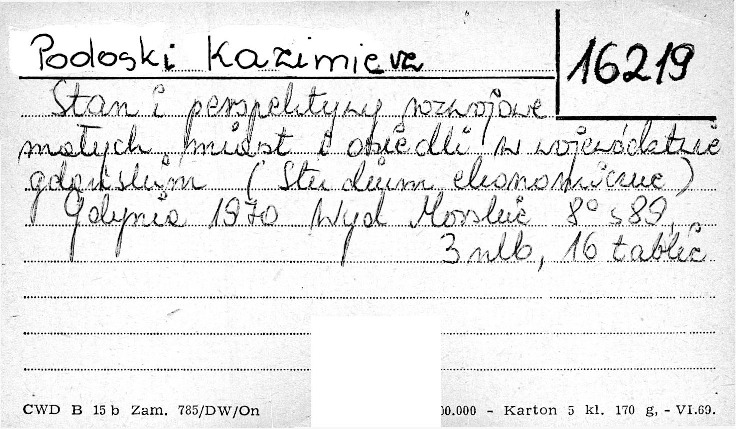 Podoski Kazimierz
16219
Stan i perspektywy rozwojowe
małych miast i osiedli w województwie
gdańskim (Studium ekonomiczne)
Gdynia 1970 Wyd Morskie 8° s 89,
3 nlb, 16 tablic
CWD B 15 b Zam. 785/DW/On 00.000 - Karton 5 kl. 170 g, - VI.69.